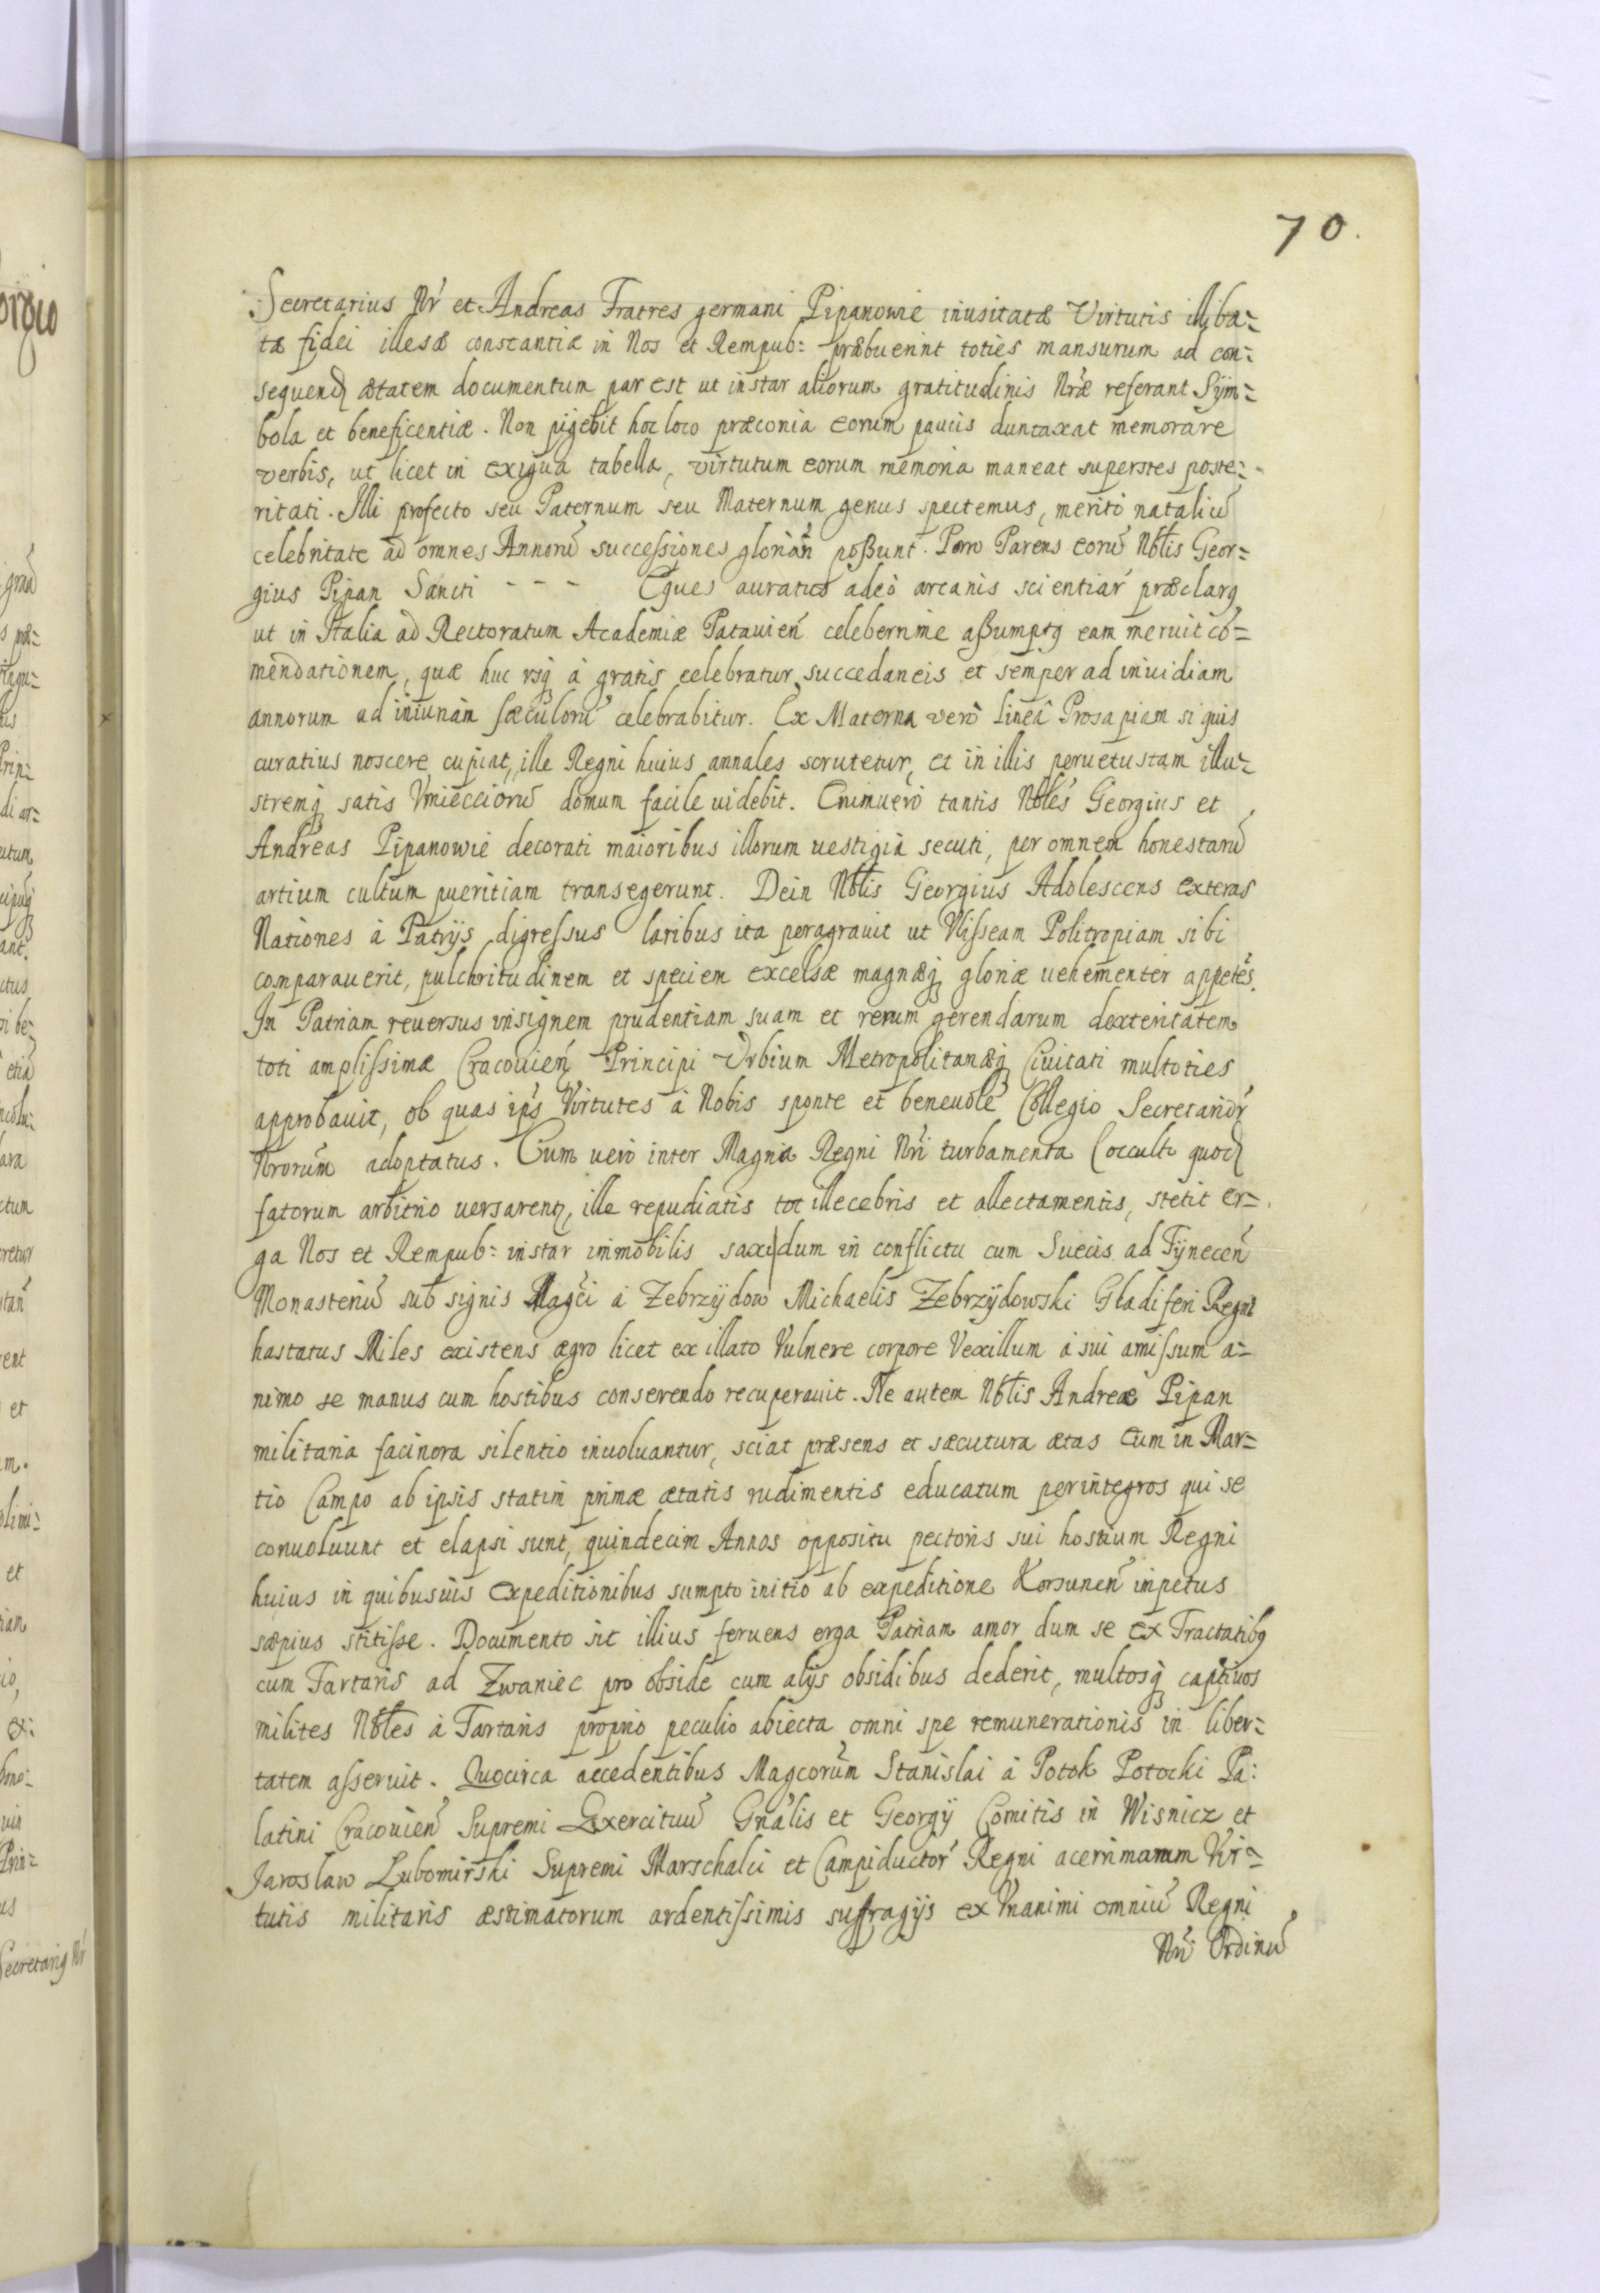 70.
Secretarius Nr̃ et Andreas Fratres germani Pipanowie inusitatæ Virtutis illiba=
tæ fidei illesæ constantiæ in Nos et Rempub: præbuerint toties mansurum ad con=
sequenđ ætatem documentum par est ut instar aliorum gratitudinis Nr̃æ referant Sÿm=
bola et beneficentiæ. Non pigebit hoc loco præconia eorum paucis duntaxat memorare
verbis, ut licet in exigua tabella, virtutum eorum memoria maneat superstes poste=
ritati. Illi profecto seu Paternum seu Maternum genus spectemus, meritò nataliũ
celebritate ad omnes Annorũ successiones gloriãri poßunt. Porro Parens eorũ Nobtlis Geor=
gius Pipan Sancti - - - Eques auratus adeò arcanis scientiar̃ præclarq
ut in Italia ad Rectoratum Academiæ Patauien̄ celeberrime aßumptq eam meruit cõ=
mendationem, quæ huc vsq à gratis celebratur succedaneis et semper ad inuidiam
annorum ad iniuriãm sæculorũ celebrabitur. Ex Materna verò Lineâ Prosapiam si quis
curatius noscere cupiat, ille Regni huius annales scrutetur, et in illis peruetustam illu=
stremq satis Vmiecciorũ domum facile uidebit. Enimuerò tantis Nobtles Georgius et
Andreas Pipanowie decorati maioribus illorum uestigia secuti, per omnem honestarũ
artium cultum pueritiam transegerunt. Dein Nobtlis Georgius Adolescens exteras
Nationes à Patrijs digressus laribus ita peragrauit ut Vlisseam Politropiam sibi
comparauerit, pulchritudinem et speciem excelsæ magnæq gloriæ uehementer appetẽs.
In Patriam reuersus insignem prudentiam suam et rerum gerendarum dexteritatem
toti amplissimæ Cracouien̄ Principi Vrbium Metropolitanæq Ciuitati multoties
approbauit, ob quas ip̃s Virtutes à Nobis sponte et beneuolè Collegio Secretarior̃
Nrorum̃ adoptatus. Cum uerò inter Magna Regni Nr̃i turbamenta (occulti quođ
fatorum arbitrio uersarent, ille repudiatis tot illecebris et allectamentis, stetit er=
ga Nos et Rempub: instar immobilis saxi dum in conflictu cum Suecis ad Tÿnecen̄
Monasteriũ sub signis Magc̃i à Zebrzÿdow Michaelis Zebrzÿdowski Gladiferi Regni
hastatus Miles existens ægro licet ex illato Vulnere corpore Vexillum à sui amissum a=
nimo se manus cum hostibus conserendo recuperauit. Ne autem Nobtlis Andreæ Pipan
militaria facinora silentio inuoluantur, sciat præsens et sæcutura ætas Eum in Mar=
tio Campo ab ipsis statim primæ ætatis rudimentis educatum per integros qui se
conuoluunt et elapsi sunt, quindecim Annos oppositu pectoris sui hostium Regni
huius in quibusuis expeditionibus sumpto initio ab expeditione Korsunen̄ inpetus
sæpius stitisse. Documento sit illius feruens erga Patriam amor dum se ex Tractatibq
cum Tartaris ad Zwaniec pro obside cum alÿs obsidibus dederit, multosq captiuos
milites Nobtles à Tartaris proprio peculio abiecta omni spe remunerationis in liber=
tatem asseruit. Quocirca accedentibus Magcorum̃ Stanislai à Potok Potocki Pa:
latini Cracouien̄ Supremi Exercituũ Gñalis et Georgÿ Comitis in Wisnicz et
Jaroslaw Lubomirski Supremi Marschalci et Campiductor̃ Regni acerrimarum Vir=
tutis militaris æstimatorum ardentissimis suffragijs ex Vnanimi omniũ Regni
Nr̃i Ordinũ